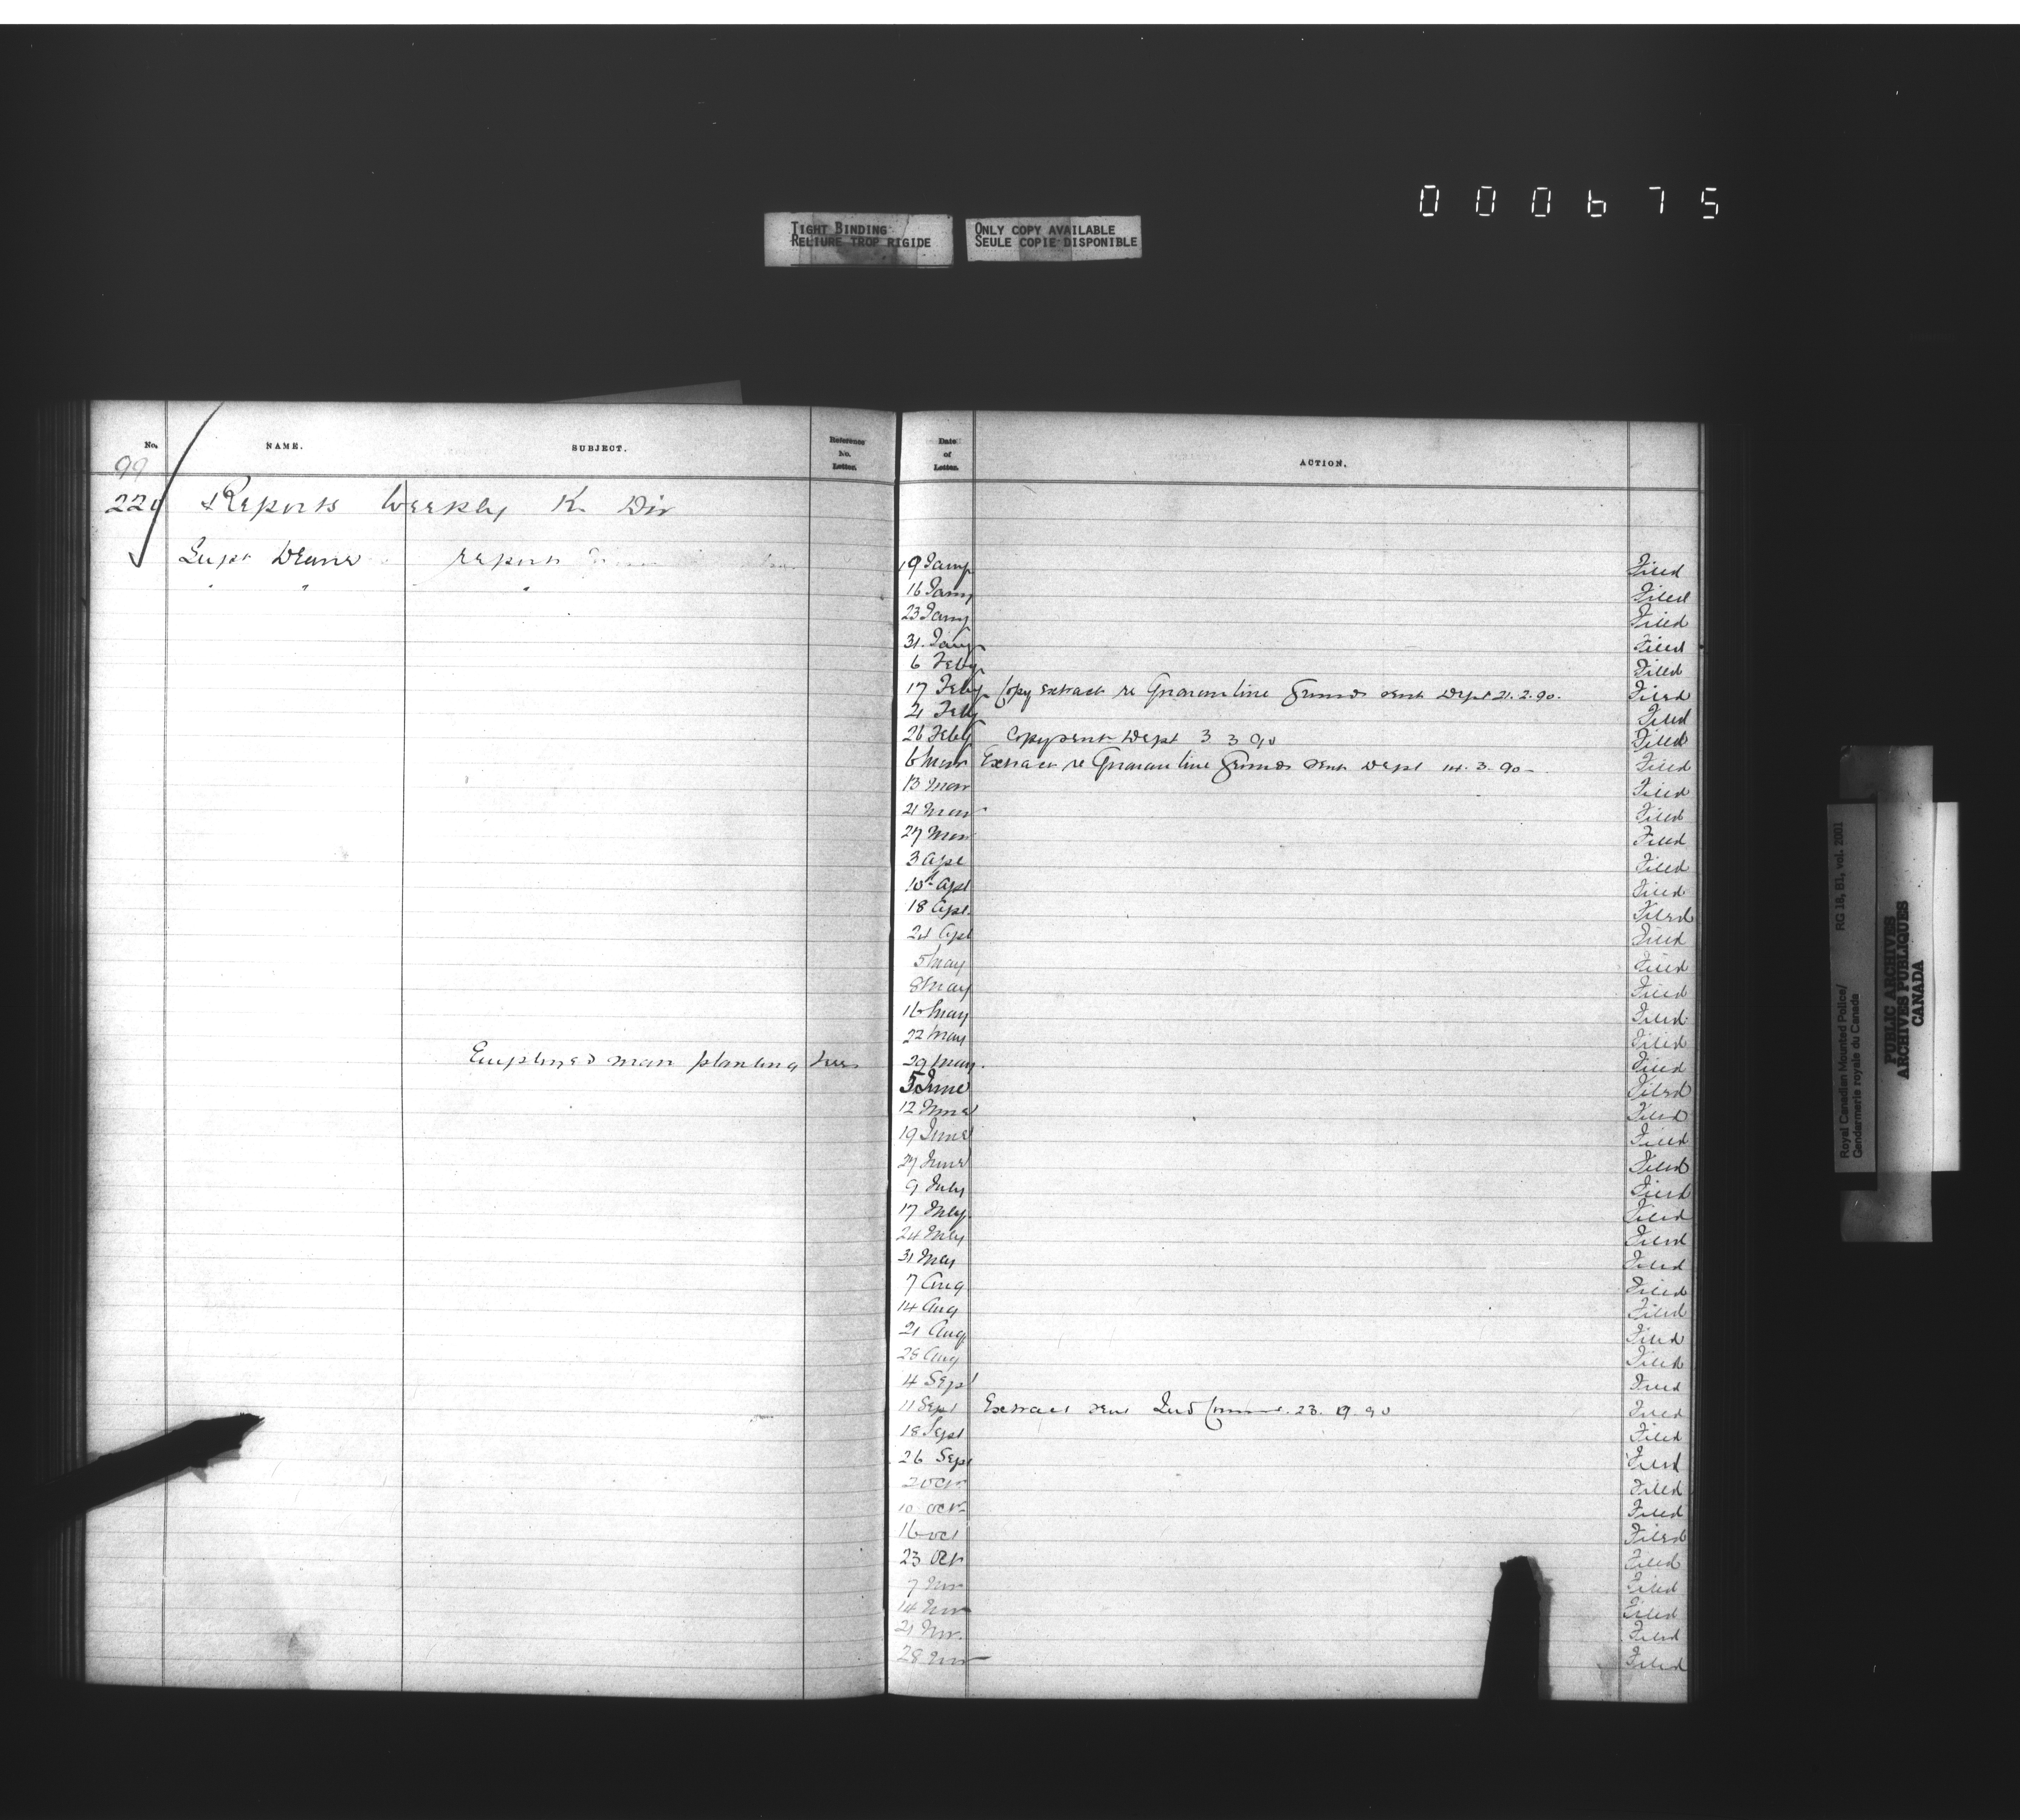 000675
TIGHT BINDING
RELIURE TROP RIGIDE
ONLY COPY AVAILABLE
SEULE COPIE DISPONIBLE
No. NAME. SUBJECT. Reference No. Letter. Date of Letter. ACTION.
99
Reports Weekly K Div
Supt Deane report 9 Jany Filed
" " " 16 Jany Filed
23 Jany Filed
31 Jany Filed
6 Feby Filed
17 Feby Copy Extract re Quarantine Grounds sent Dept 21.2.90. Filed
21 Feby Filed
26 Feby Copy sent Dept 3 3 90 Filed
6 Mar Extract re Quarantine Grounds sent Dept 14.3.90 Filed
13 Mar Filed
21 Mar Filed
27 Mar Filed
3 Apl Filed
10th Apl Filed
18 Apl. Filed
24 Apl Filed
5 May Filed
8 May Filed
16 May Filed
22 May Filed
Employed man planting trees 29 May. Filed
5 June Filed
12 June Filed
19 June Filed
27 June Filed
9 July Filed
17 July Filed
24 July Filed
31 July Filed
7 Aug Filed
14 Aug Filed
21 Aug Filed
28 Aug Filed
4 Sept Filed
11 Sept Extract sent Ind Commr. 23. 9. 90 Filed
18 Sept Filed
26 Sept Filed
2 Oct Filed
10 Oct Filed
16 Oct Filed
23 Oct Filed
7 Nov Filed
14 Nov Filed
21 Nov. Filed
28 Nov Filed
Royal Canadian Mounted Police/ RG 18, B1, vol. 2001
Gendarmerie royale du Canada
PUBLIC ARCHIVES
ARCHIVES PUBLIQUES
CANADA